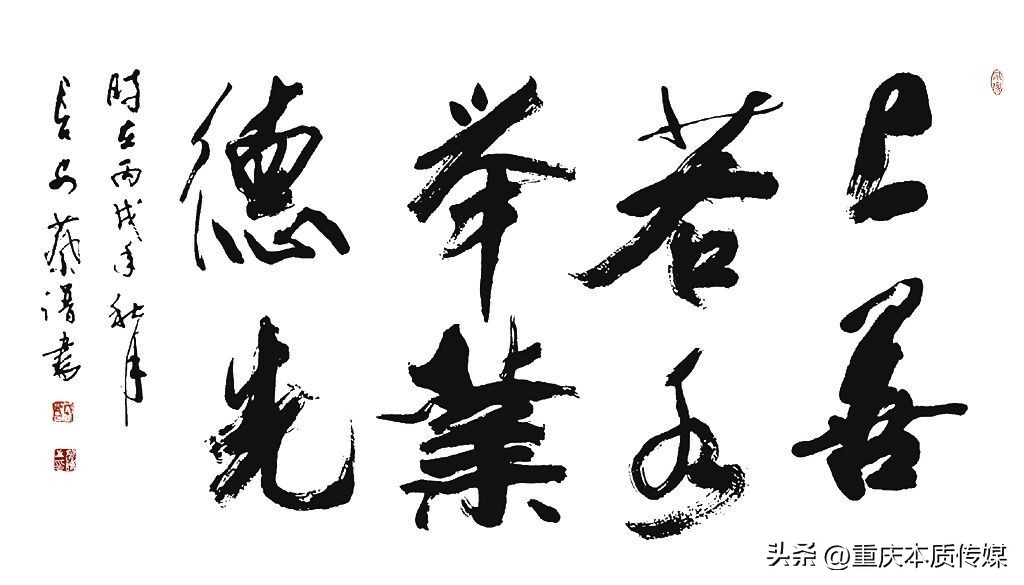 上善
若水
举業
德先
時在丙戌年秋月
長安蔡書
头条 @重庆本质传媒